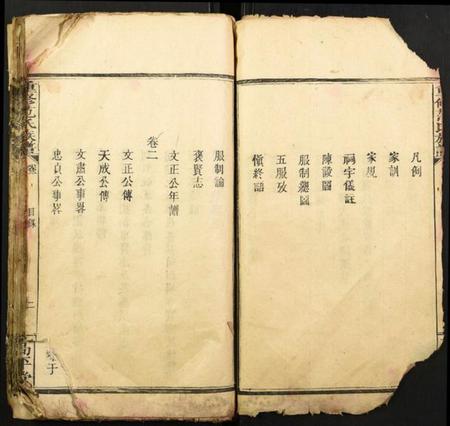 凡例
家訓
家規
祠宇儀註
陳設圖
服制總圖
五服攷
愼終語
服制論
褒賢志
文正公年譜
卷二
文正公傳
天成公傳
文肅公事畧
忠貞公事畧
重修范氏族譜
目錄
高平堂